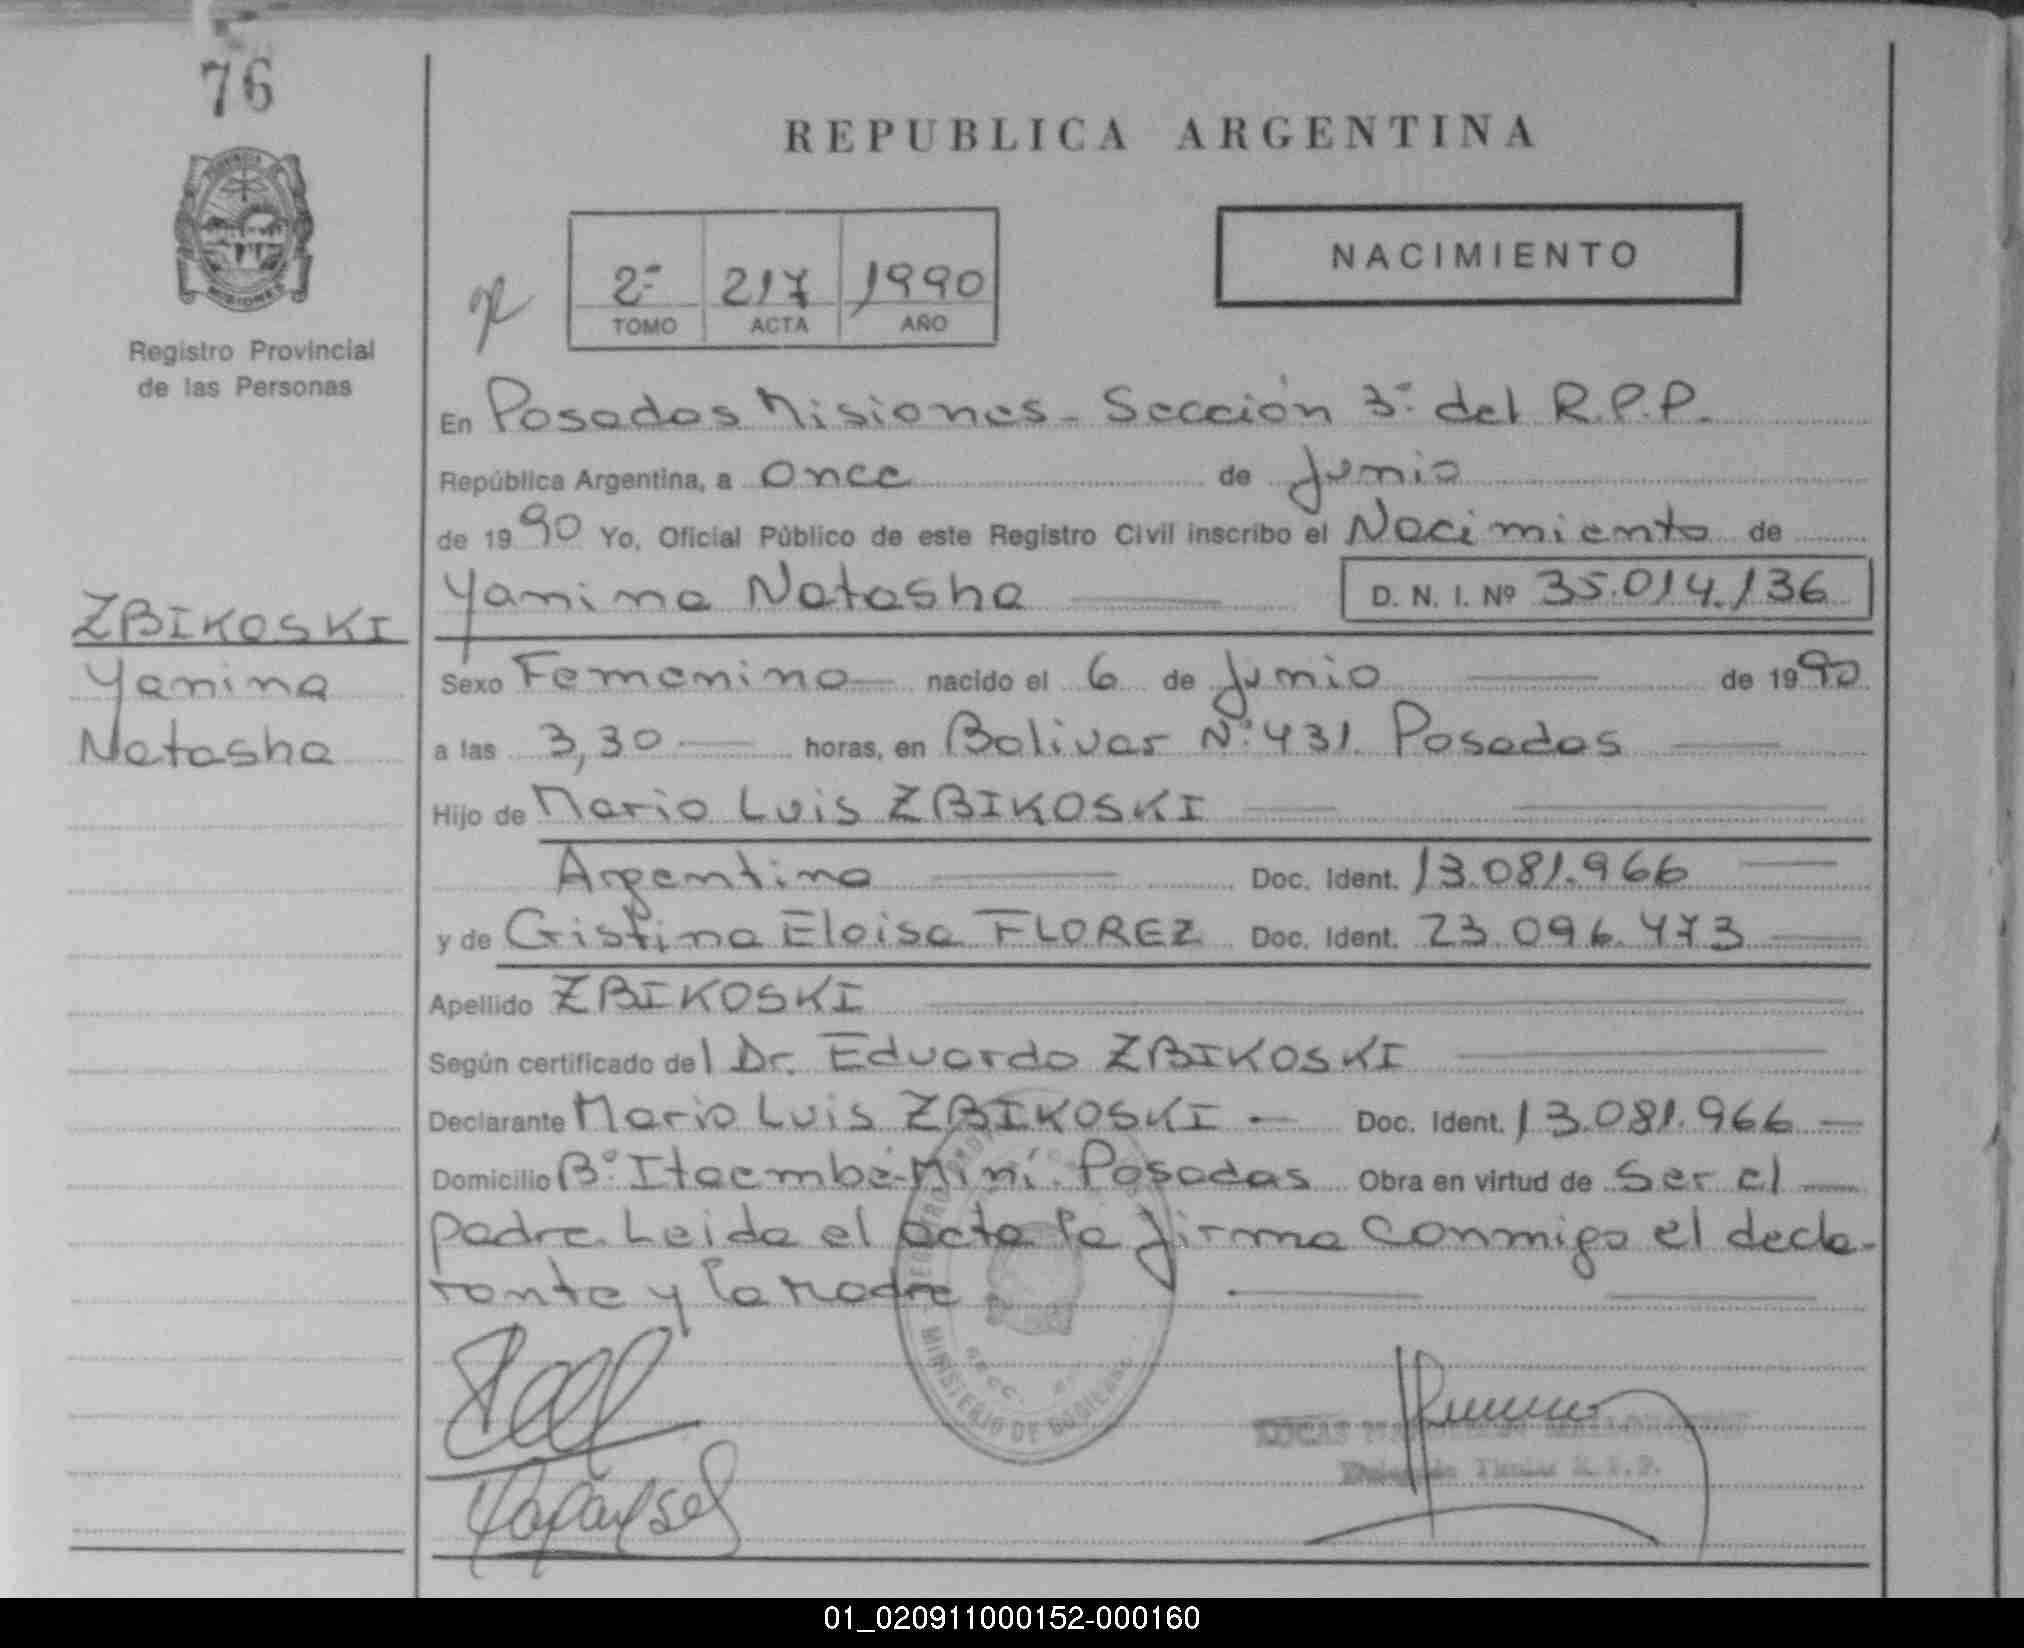 76
PROVINCIA
MISIONES
Registro Provincial
de las Personas
REPUBLICA ARGENTINA
2º 217 1990
TOMO ACTA AÑO
NACIMIENTO
En Posadas Misiones - Sección 3ª del R.P.P.
República Argentina, a once de Junio
de 1990 Yo, Oficial Público de este Registro Civil inscribo el Nacimiento de
Yanina Natasha D. N. I. Nº 35.014.136
ZBIKOSKI
Yanina
Natasha
Sexo Femenino nacido el 6 de Junio de 1990
a las 3,30 horas, en Bolivar Nº 431. Posadas
Hijo de Mario Luis ZBIKOSKI
Argentino Doc. Ident. 13.081.966
y de Cristina Eloisa FLOREZ Doc. Ident. 23.096.473
Apellido ZBIKOSKI
Según certificado del Dr. Eduardo ZBIKOSKI
Declarante Mario Luis ZBIKOSKI - Doc. Ident. 13.081.966
Domicilio Bº Itaembé-Miní. Posadas Obra en virtud de Ser el
padre. Leida el acta la firma conmigo el decla-
rante y la Madre
MINISTERIO DE GOBIERNO
LUCAS
Titular R.P.P.
01_020911000152-000160